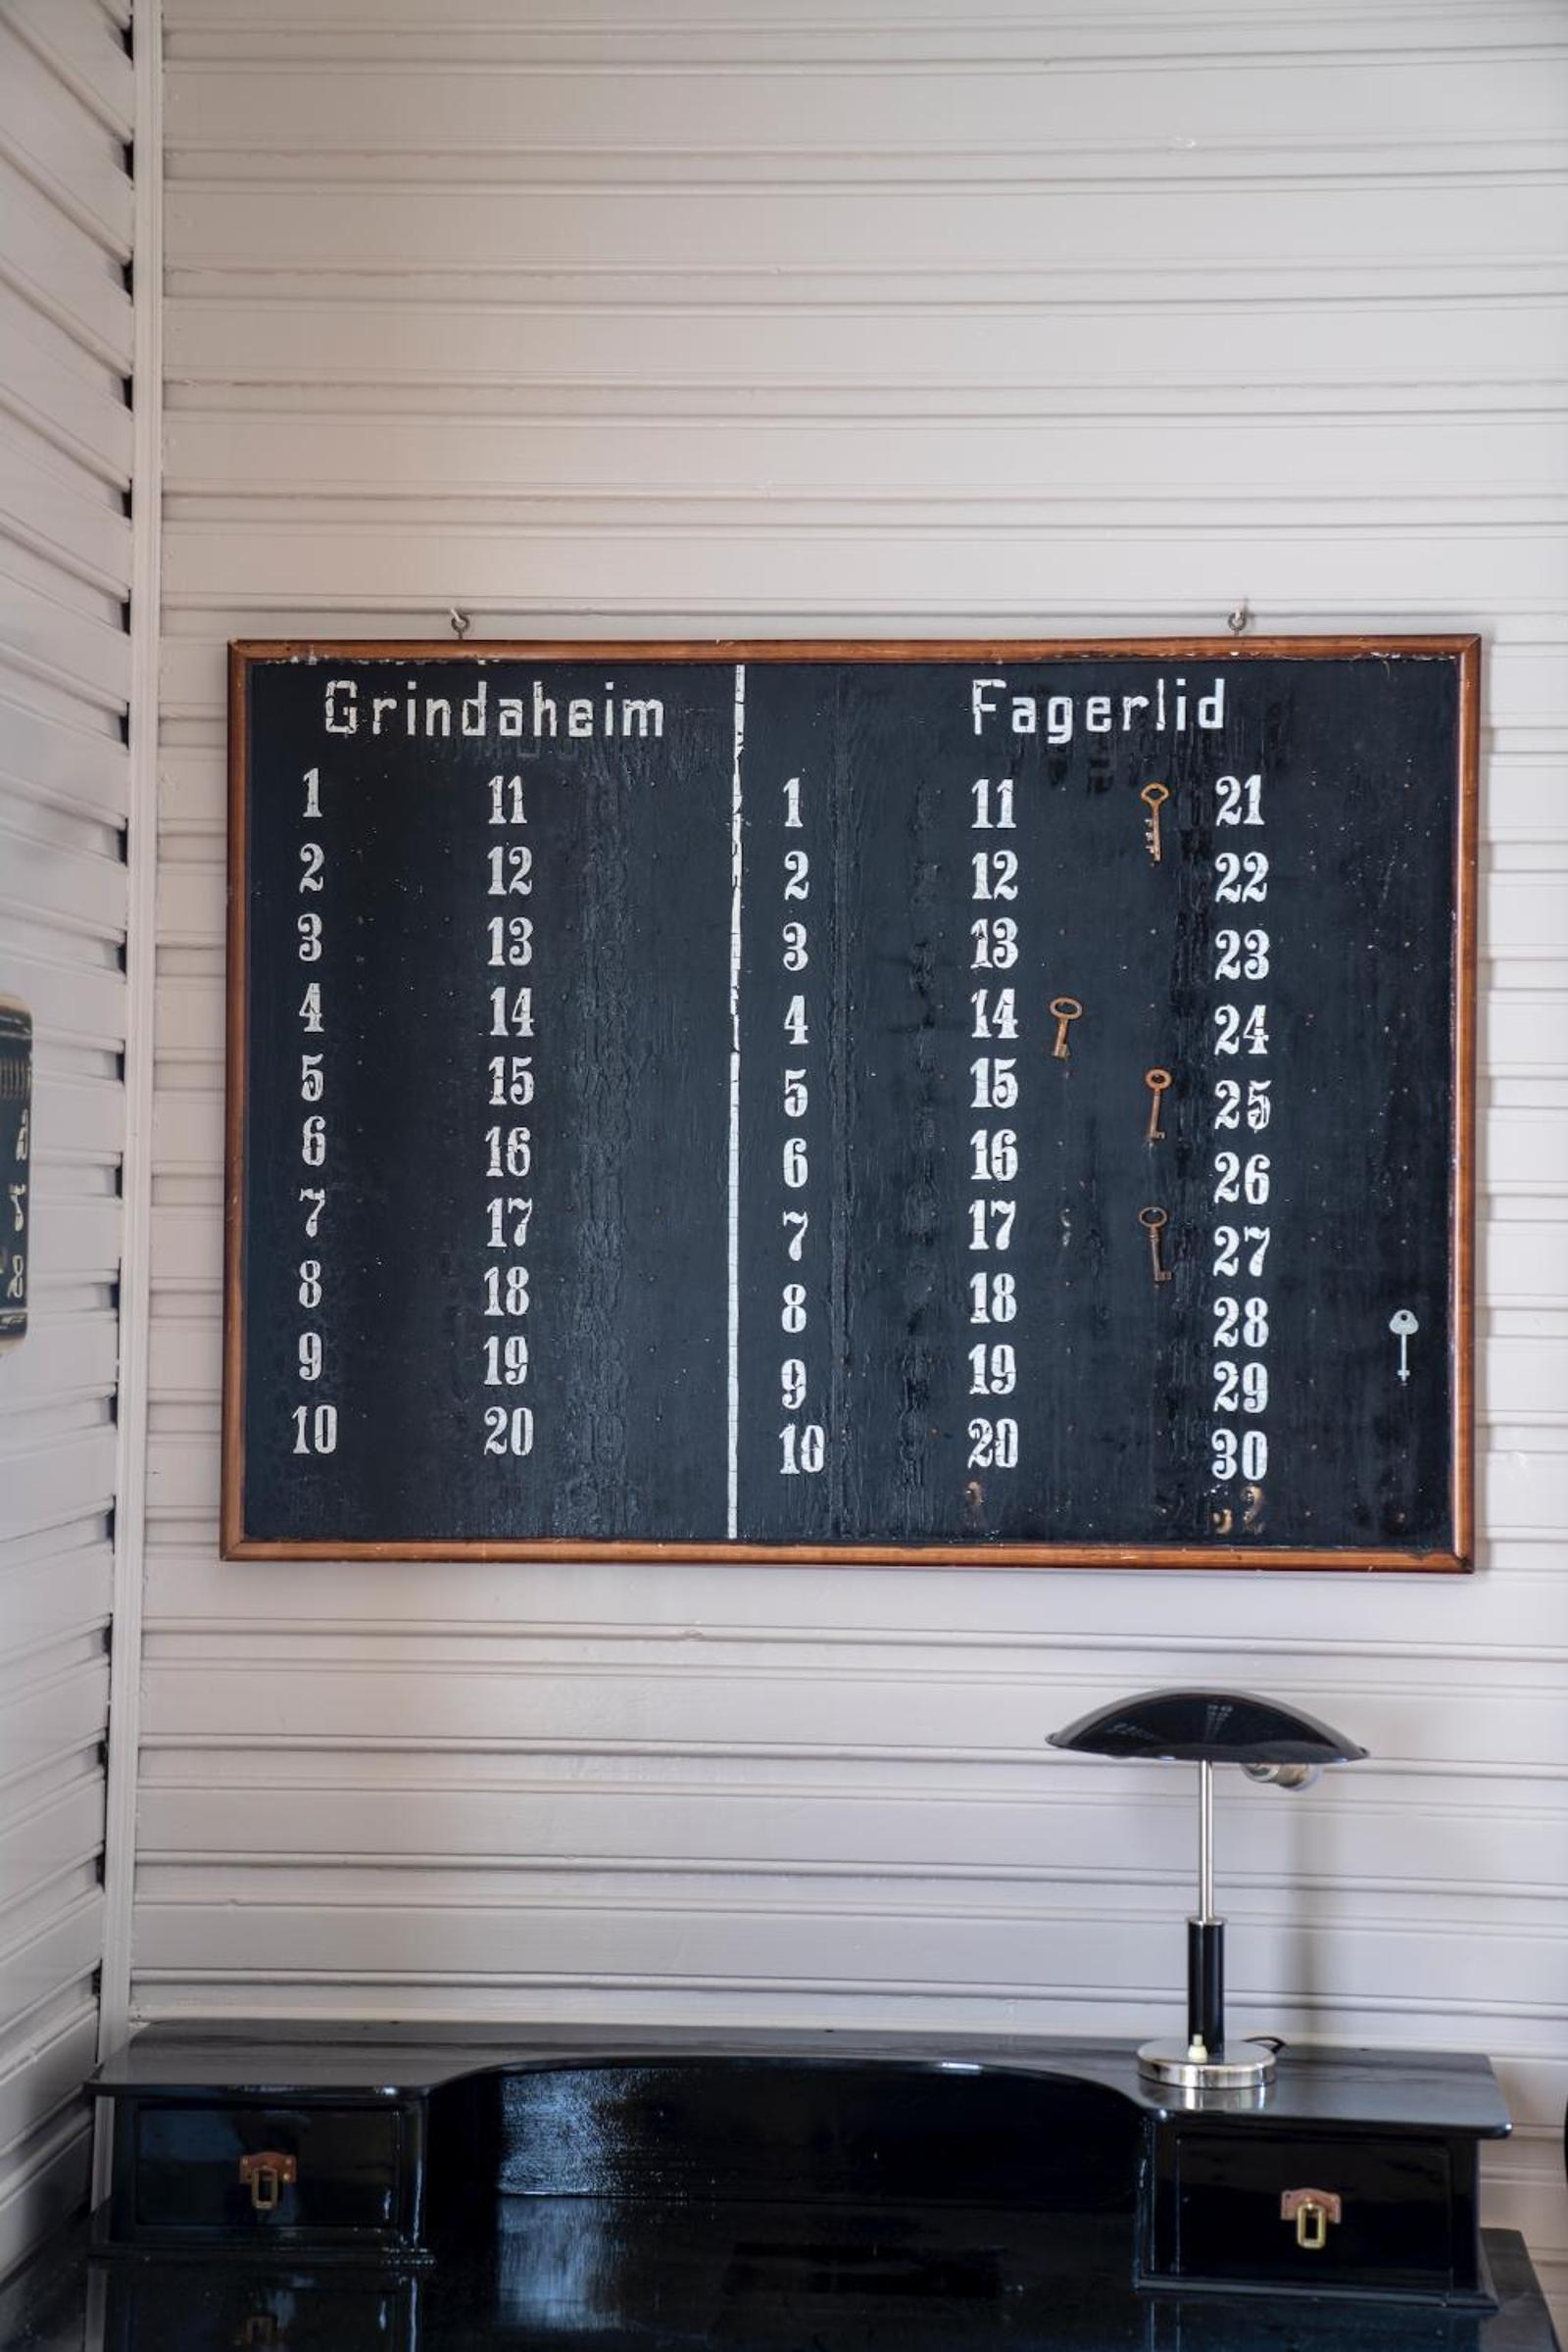 Grindaheim Fagerlid
1 11 1 11 21
2 12 2 12 22
3 13 3 13 23
4 14 4 14 24
5 15 5 15 25
6 16 6 16 26
7 17 7 17 27
8 18 8 18 28
9 19 9 19 29
10 20 10 20 30